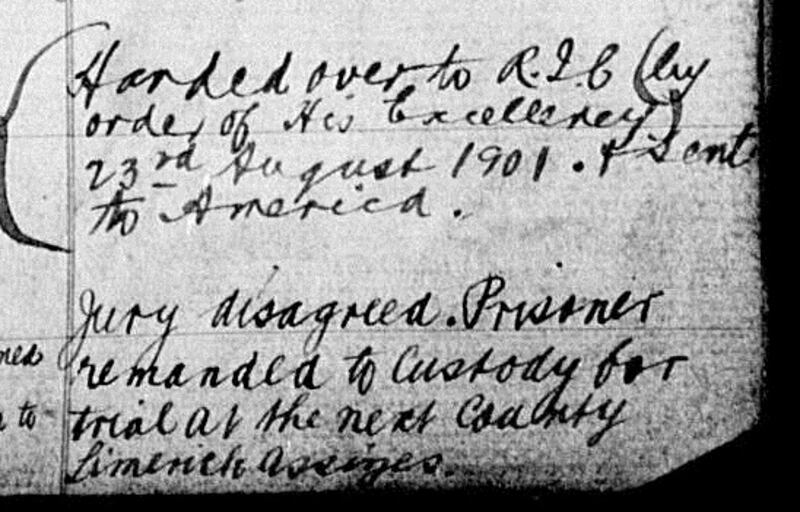 Handed over to R.I.C (by
order of His Excellency)
23rd August 1901. & sent
to America.
Jury disagreed. Prisoner
remanded to Custody for
trial at the next County
Limerick Assizes.
to